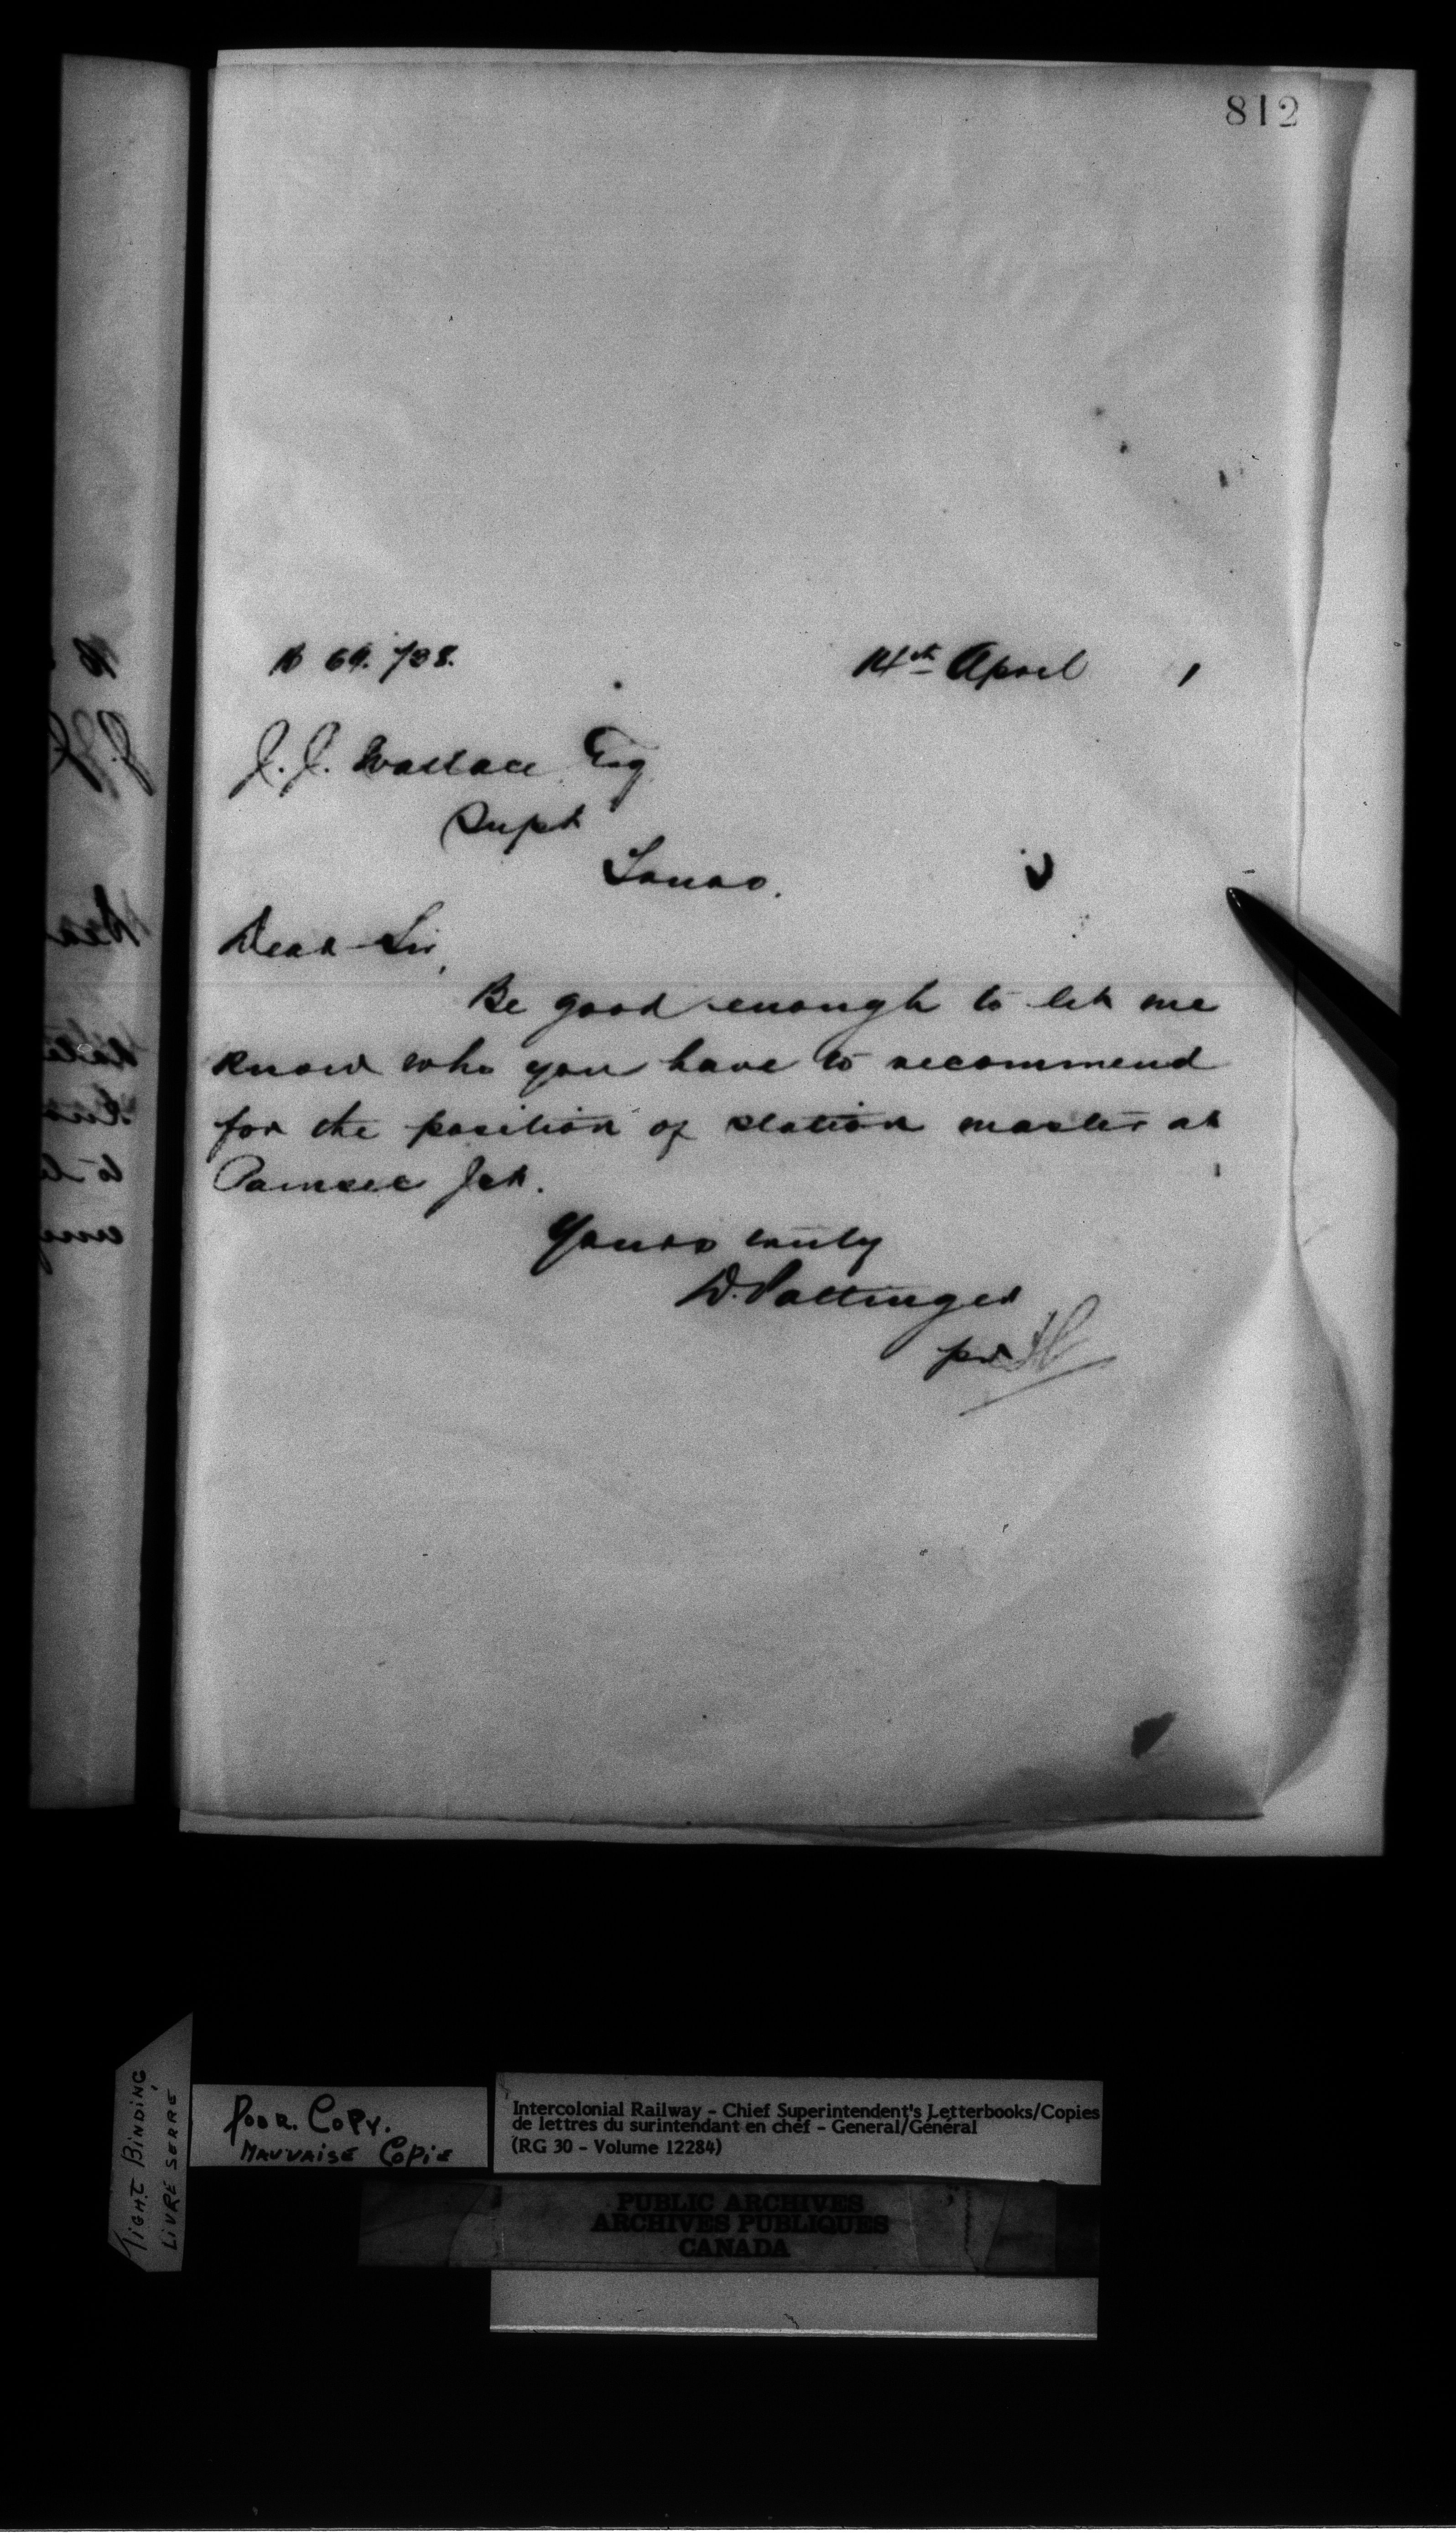 812
14th April
J. J. Wallace Esq
Supt
Dear Sir,
Be good enough to let me
know who you have to recommend
for the position of station master at
Painsec Jct.
Yours truly
D. Pottinger
pr
TIGHT BINDING
LIVRE SERRÉ
POOR COPY.
MAUVAISE COPIE
Intercolonial Railway - Chief Superintendent's Letterbooks/Copies
de lettres du surintendant en chef - General/Général
(RG 30 - Volume 12284)
PUBLIC ARCHIVES
ARCHIVES PUBLIQUES
CANADA